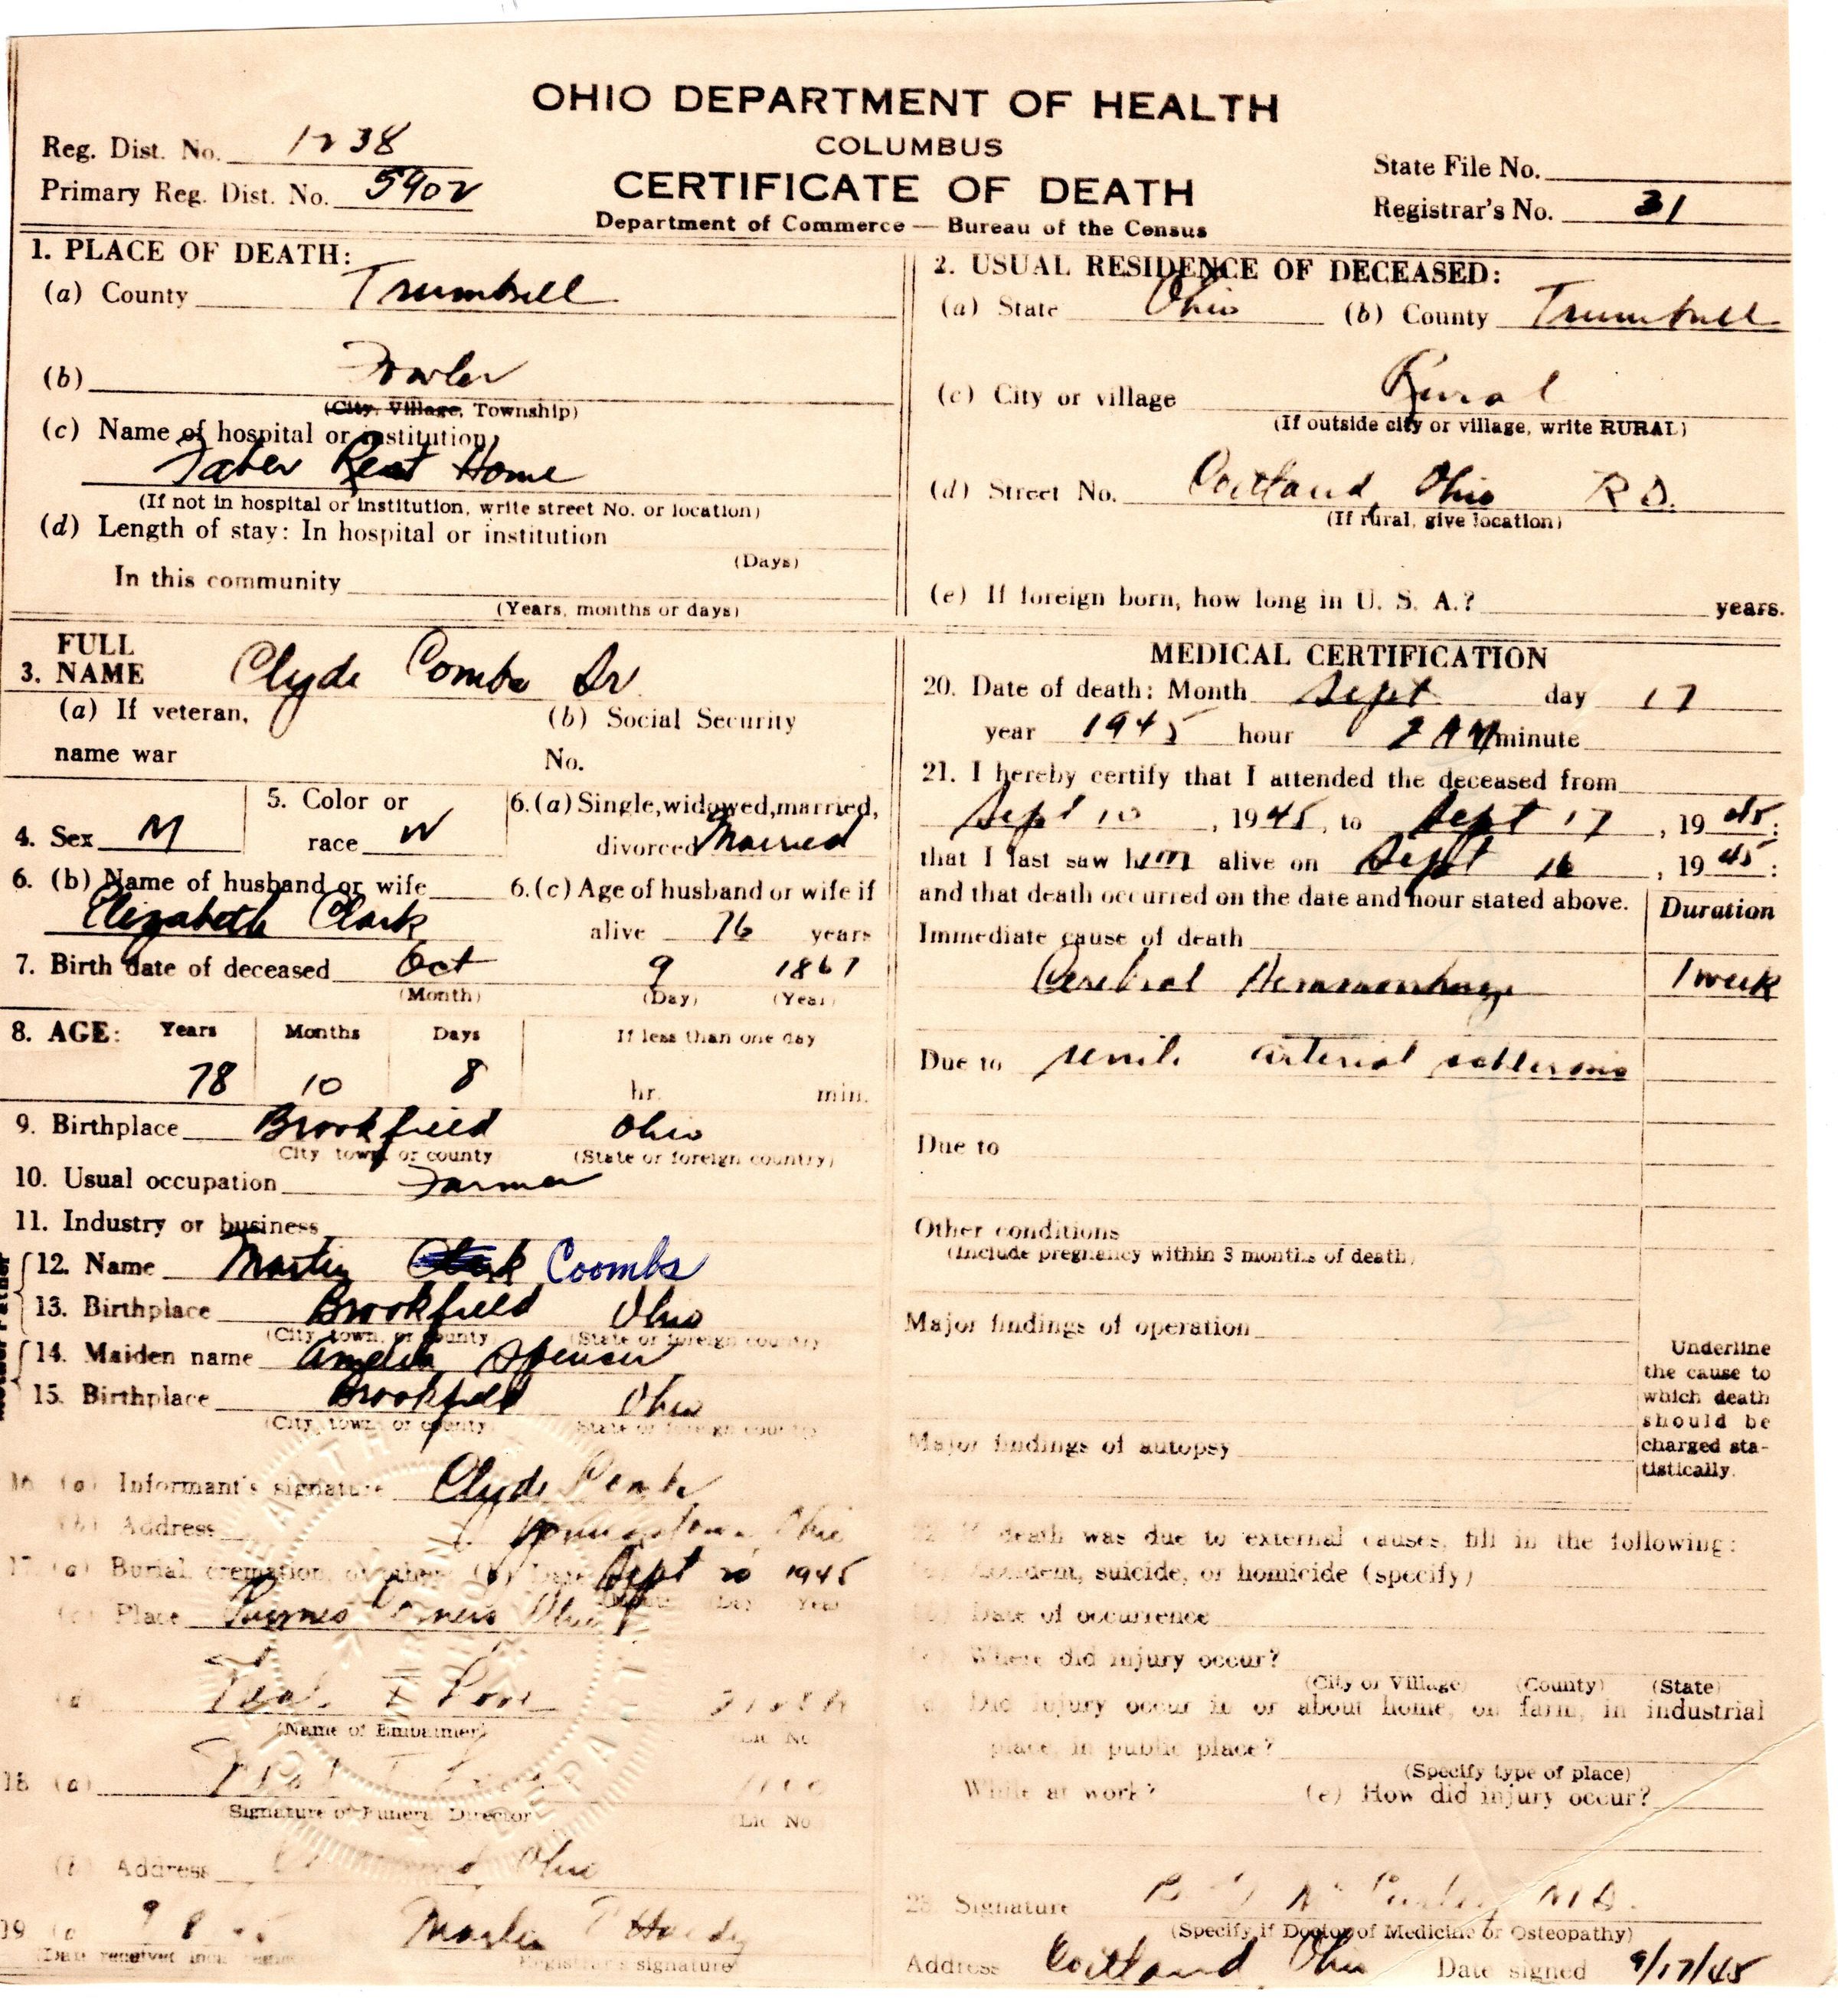 OHIO DEPARTMENT OF HEALTH
COLUMBUS
CERTIFICATE OF DEATH
Department of Commerce — Bureau of the Census
Reg. Dist. No. 1238
Primary Reg. Dist. No. 5902
State File No.
Registrar's No. 31
1. PLACE OF DEATH:
(a) County Trumbull
(b) Fowler
(City, Village, Township)
(c) Name of hospital or institution
Taber Rest Home
(If not in hospital or institution, write street No. or location)
(d) Length of stay: In hospital or institution
(Days)
In this community
(Years, months or days)
2. USUAL RESIDENCE OF DECEASED:
(a) State Ohio (b) County Trumbull
(c) City or village Rural
(If outside city or village, write RURAL)
(d) Street No. Cortland, Ohio R D.
(If rural, give location)
(e) If foreign born, how long in U. S. A.? years.
FULL
3. NAME Clyde Combs Sr
(a) If veteran, (b) Social Security
name war No.
4. Sex M
5. Color or
race W
6. (a) Single, widowed, married,
divorced Married
6. (b) Name of husband or wife
Elizabeth Clark
6. (c) Age of husband or wife if
alive 76 years
7. Birth date of deceased Oct 9 1867
(Month) (Day) (Year)
8. AGE: Years Months Days If less than one day
78 10 8 hr. min.
9. Birthplace Brookfield Ohio
(City, town, or county) (State or foreign country)
10. Usual occupation Farmer
11. Industry or business
Father
12. Name Martin Coombs
13. Birthplace Brookfield Ohio
(City, town, or county) (State or foreign country)
Mother
14. Maiden name Amelia Spencer
15. Birthplace Brookfield Ohio
(City, town, or county) (State or foreign country)
16. (a) Informant's signature Clyde
(b) Address Youngstown, Ohio
17. (a) Burial, cremation, or other (b) Date Sept 20 1945
(Month) (Day) (Year)
(c) Place Paynes Corners Ohio
(d)
(Name of Embalmer) Lic. No.
18. (a)
Signature of Funeral Director Lic. No.
(b) Address Ohio
19. (a) Hardy
(Date received local registrar) Registrar's signature
MEDICAL CERTIFICATION
20. Date of death: Month Sept day 17
year 1945 hour 2 AM minute
21. I hereby certify that I attended the deceased from
Sept 10, 1945, to Sept 17, 1945;
that I last saw him alive on Sept 16, 1945;
and that death occurred on the date and hour stated above.
Duration
Immediate cause of death
Cerebral Hemmorhage 1 week
Due to senile arterial
Due to
Other conditions
(Include pregnancy within 3 months of death)
Major findings of operation
Major findings of autopsy
Underline
the cause to
which death
should be
charged sta-
tistically.
22. If death was due to external causes, fill in the following:
(a) Accident, suicide, or homicide (specify)
(b) Date of occurrence
(c) Where did injury occur?
(City or Village) (County) (State)
(d) Did injury occur in or about home, on farm, in industrial
place, in public place?
(Specify type of place)
While at work? (e) How did injury occur?
23. Signature M.D.
(Specify if Doctor of Medicine or Osteopathy)
Address Cortland, Ohio Date signed 9/17/45